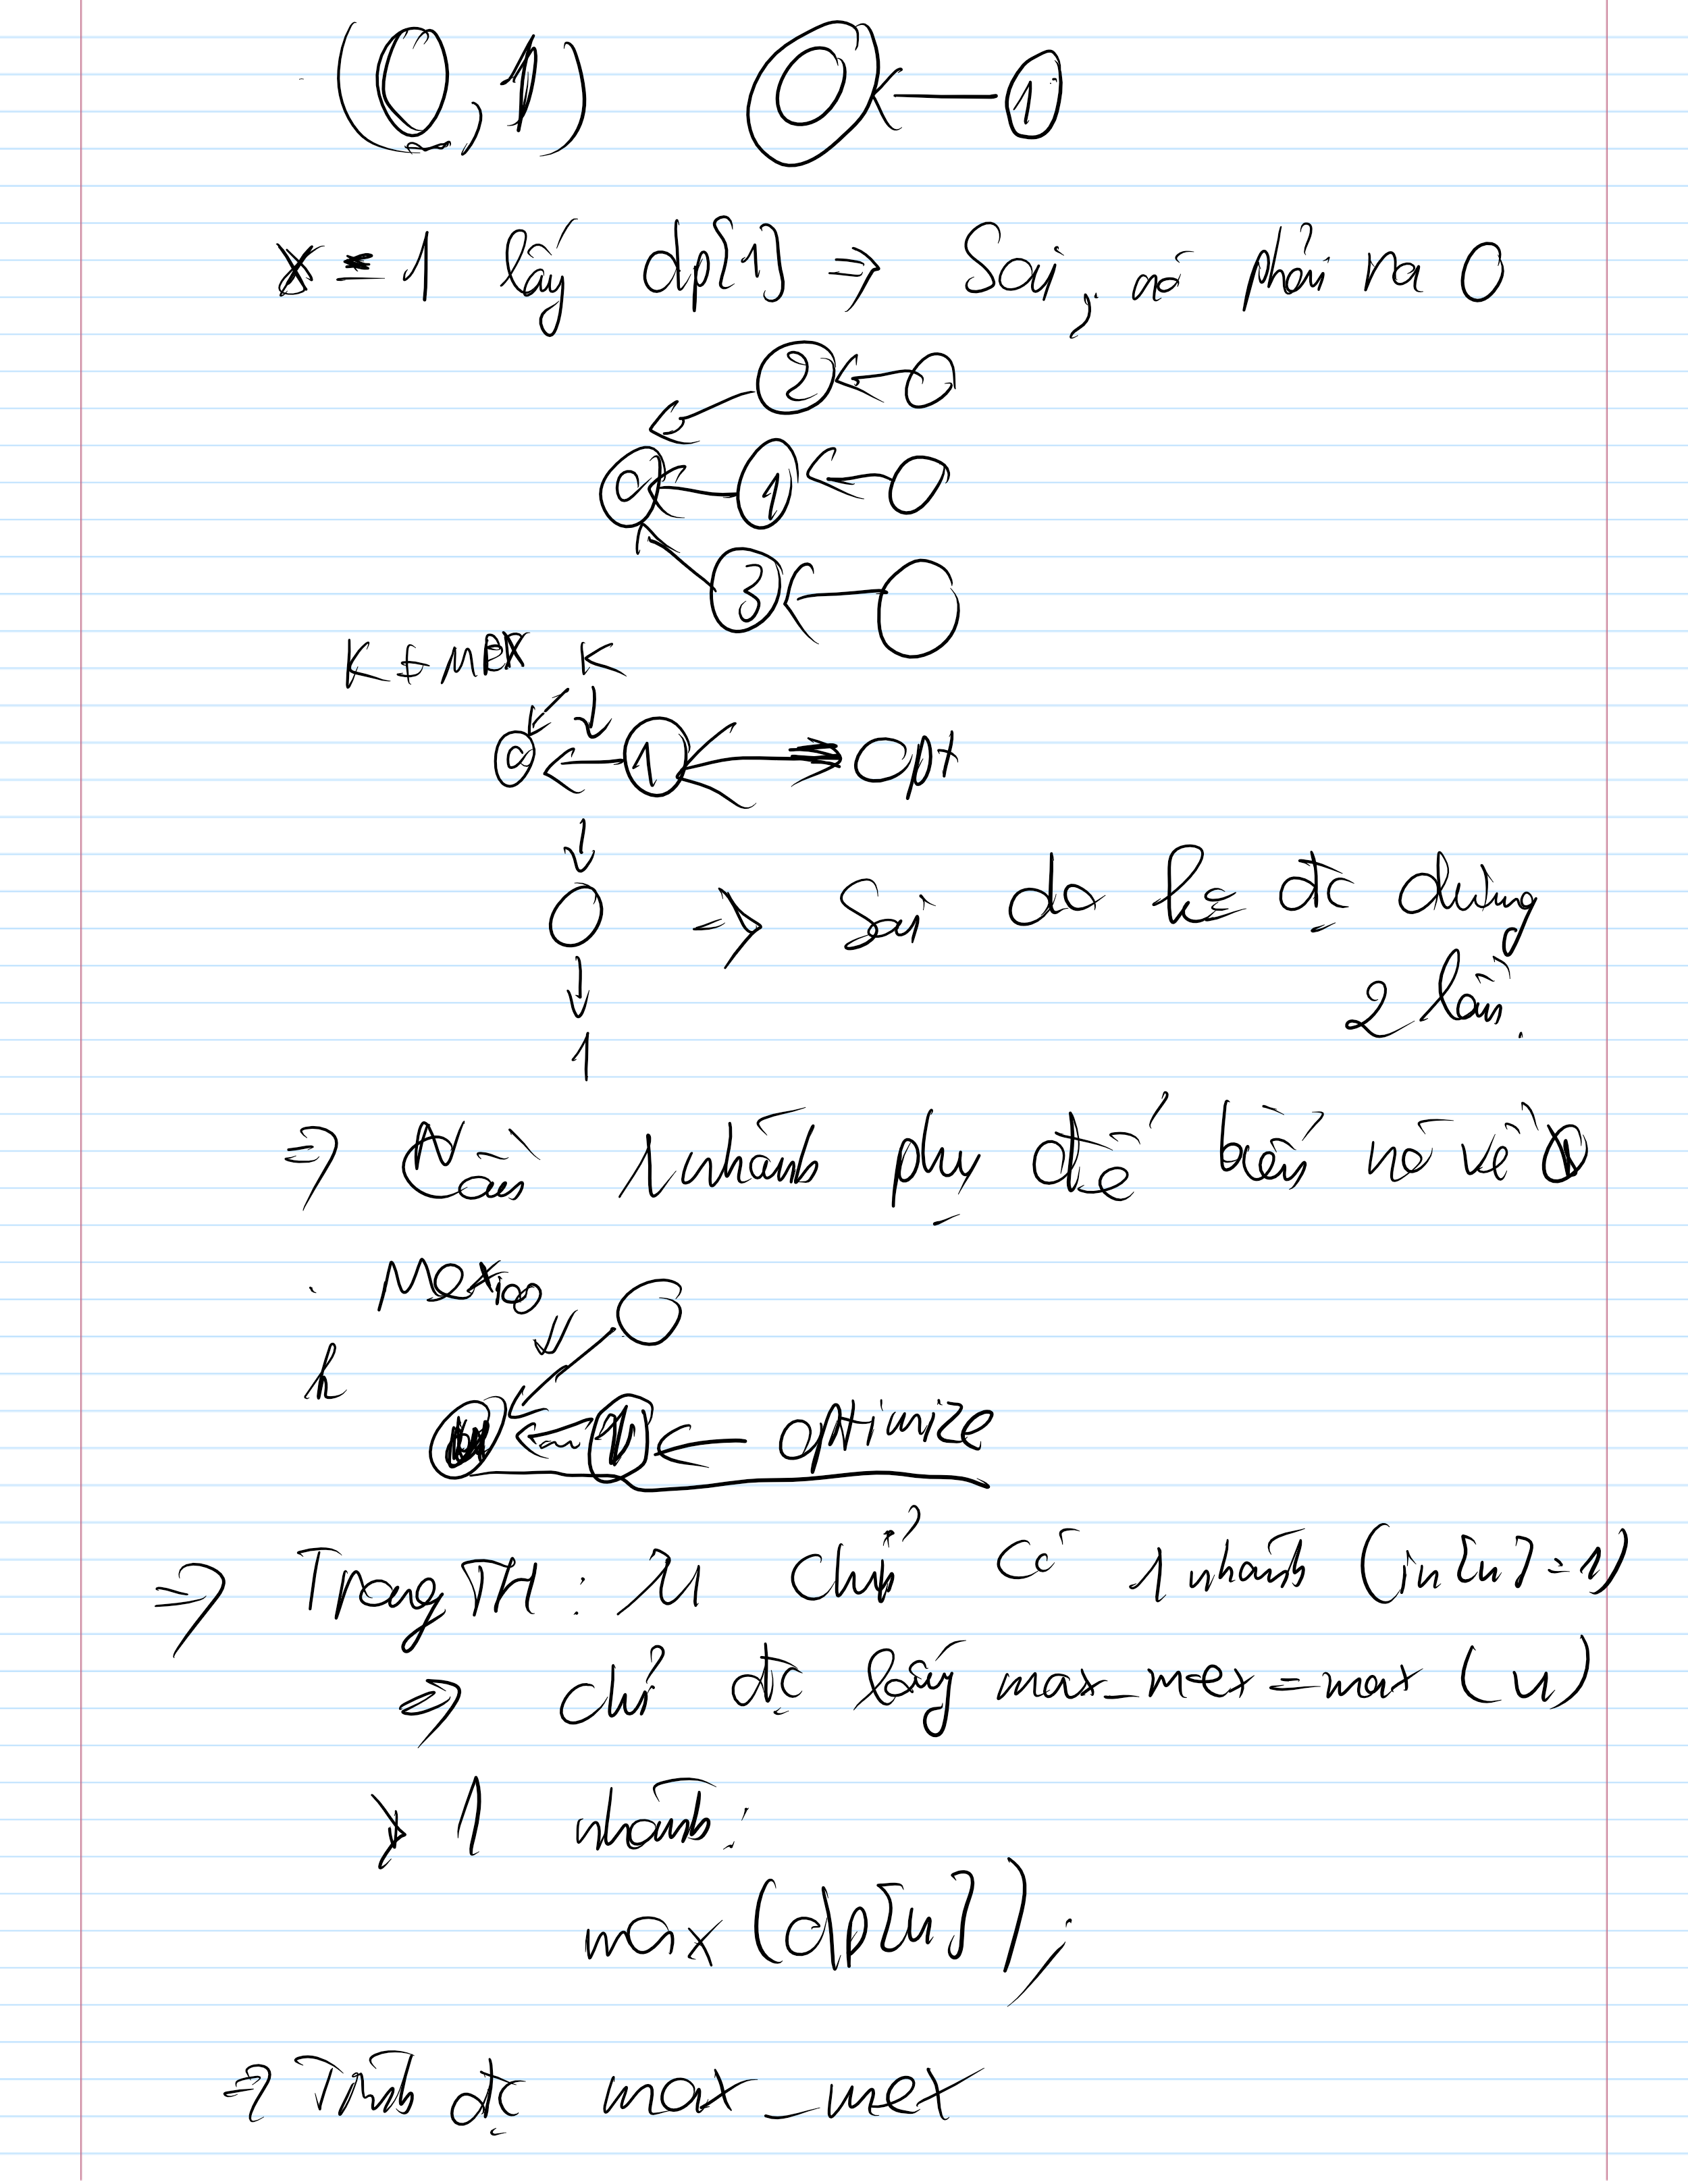 (0, 1) 0 ← 1
x = 1 lấy dp[1] ⇒ Sai, nó phải ra 0
2 ← 0
0 ← 1 ← 0
3 ← 0
K ≠ MEX K
0 ← 1 ← opt
↓
0 ⇒ Sai do k đc dùng
↓ 2 lần.
1
⇒ Cần 1 nhánh phụ để biến nó về 0
Mex
← optimize
⇒ Trong TH: u chỉ có 1 nhánh (in[u] = 1)
⇒ chỉ đc lấy max_mex = max (u)
> 1 nhánh:
max (dp[u]);
⇒ Tính đc max_mex